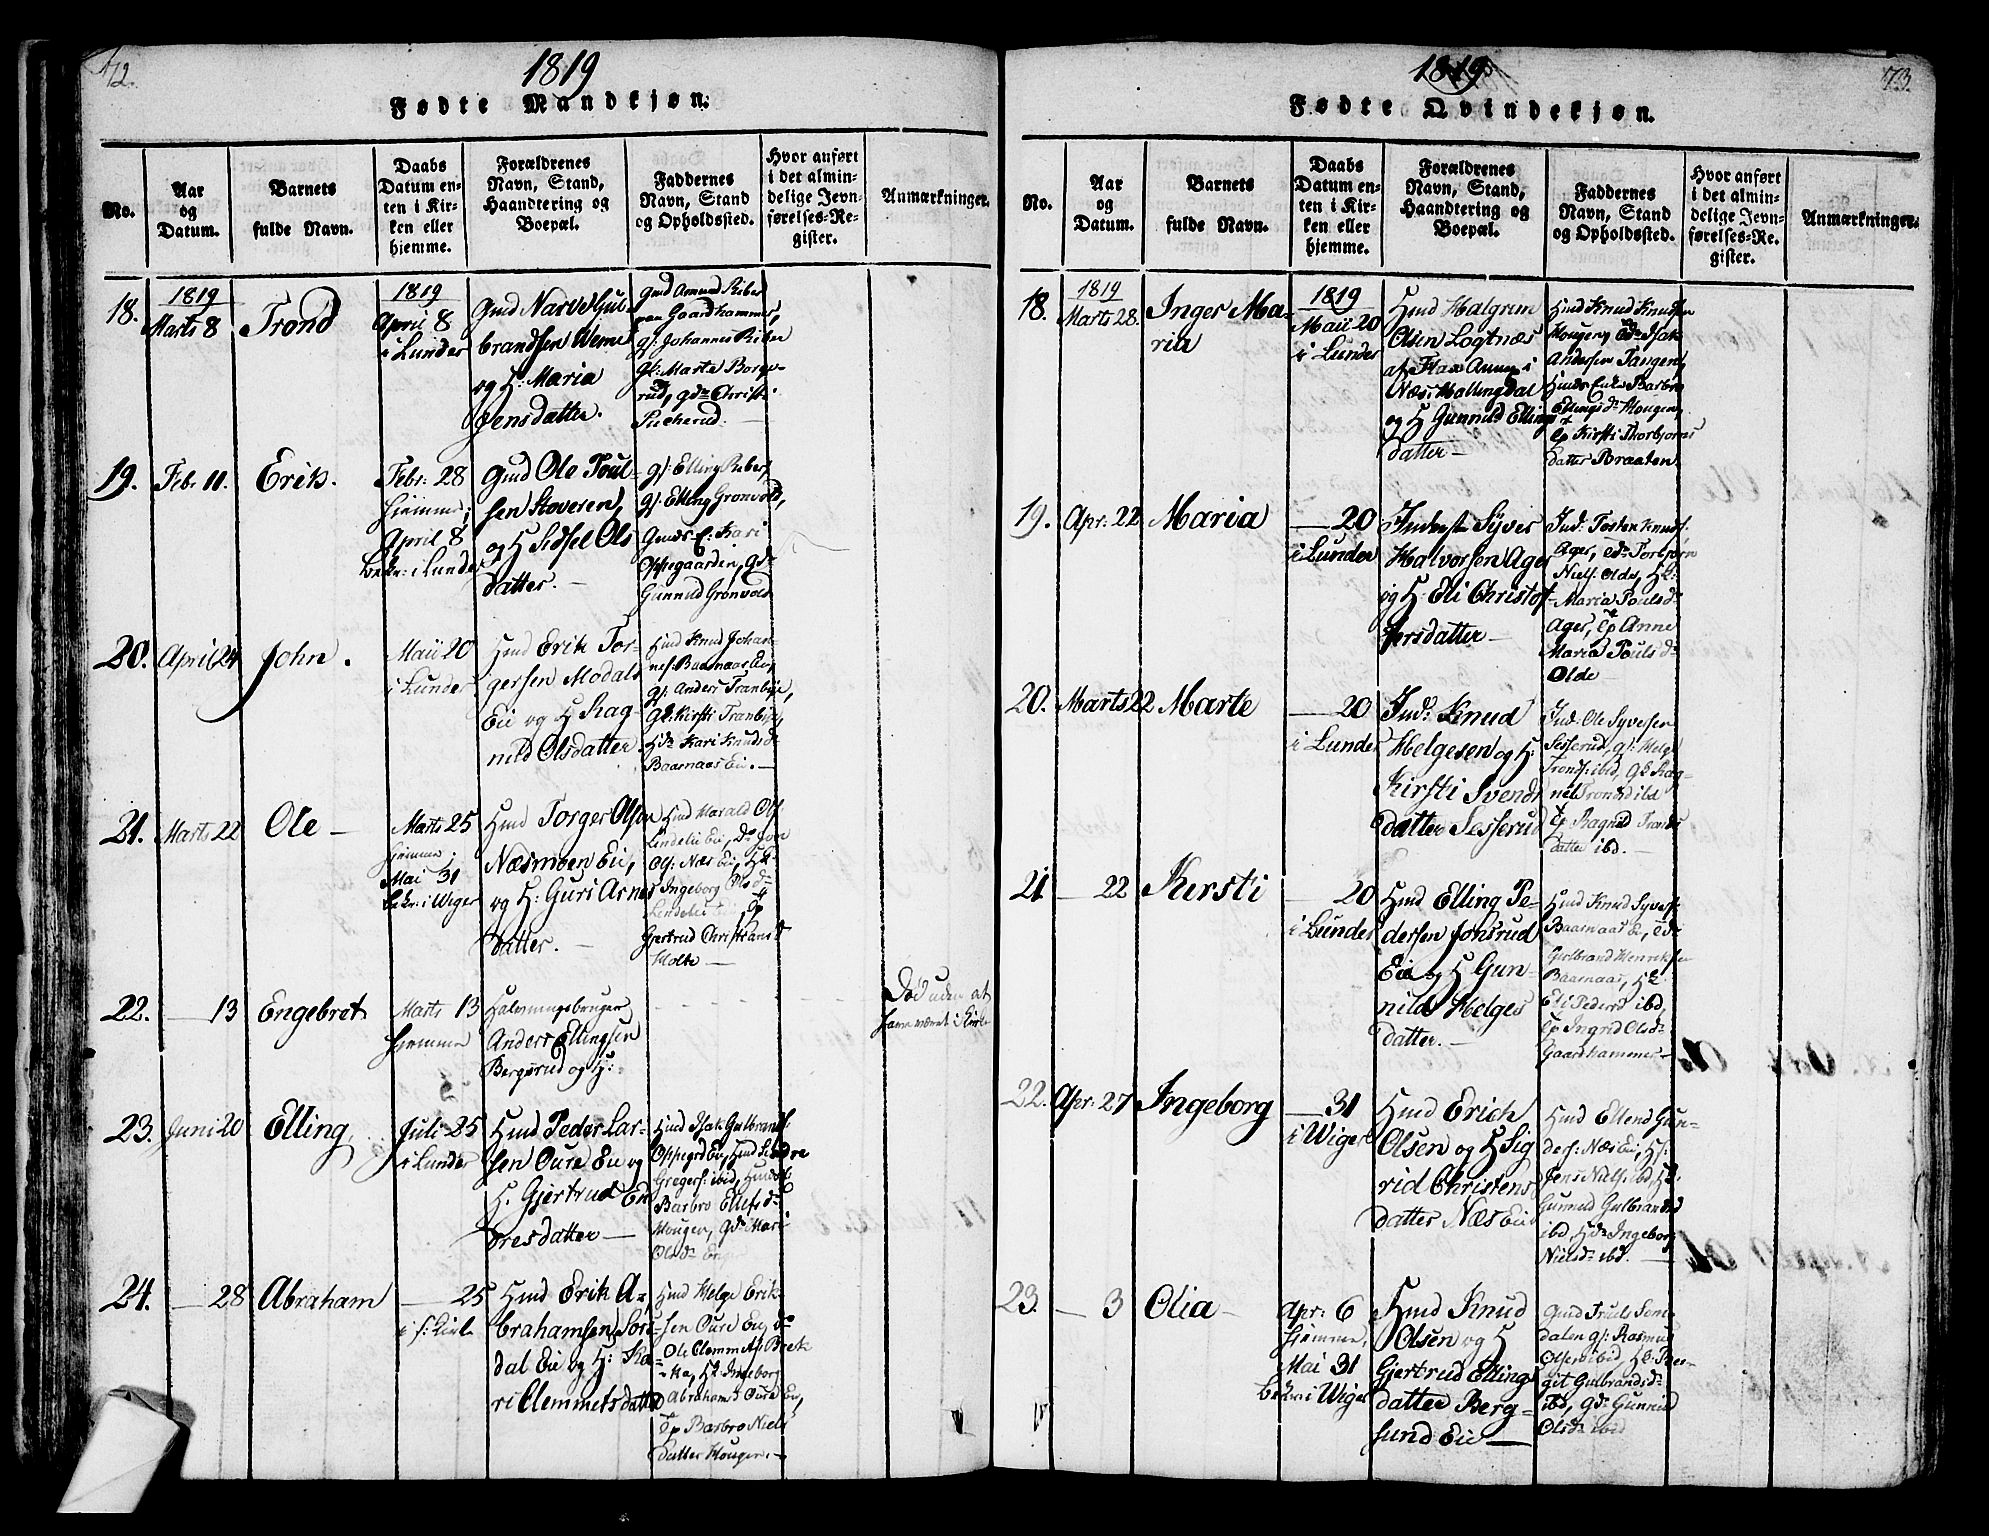 72.
1819
Fødte Mandkjøn.
No.
Aar
og
Datum.
Barnets
fulde Navn.
Daabs
Datum en-
ten i Kir-
ken eller
hjemme.
Forældrenes
Navn, Stand,
Haandtering og
Boepæl.
Faddernes
Navn, Stand
og Opholdssted.
Hvor anført
i det almin-
delige Jevn-
førelses-Re-
gister.
Anmærkninger.
18.
1819
Marts 8
Trond
1819
April 8
i Lunder
Gmd Narve Gul-
brandsen Weme
og H. Maria
Jensdatter.
Gmd Amund Riber
Gaardhammer,
gs: Johannes Riber
gk: Marte Borge-
rud, gd Christi
19.
Feb. 11.
Erik.
Febr: 28
hjemme;
April 8
bekr: i Lunder
Gmd Ole Poul-
sen Stoveren,
og H Sidsel Ols
datter. —
gs: Elling Riber,
gs: Elling Grønvold,
Gmds E: Kari
Oppegaarden, gd
Gunnild Grønvold
20.
April 24
John.
Maii 20
i Lunder
Hmd Erik Tor-
gersen Modals
Eie og H Rag-
nild Olsdatter
Hmd Knud Johan-
nes: Baarnaas Ei,
gs: Anders Tranbye,
gk: Kirsti Tranbye,
Hd Kari Knuds d
Baarnaas Ei. —
21.
Marts 22
Ole —
Marts 25
hjemme;
Mai 31
bekr: i Wiger
Hmd Torger Olsen
Næsmoen Ei,
og H: Guri Arnes
datter. —
Hmd Harald Ols
Lindelie Ei, do Jon
Ols: Næs Ei, Hk
Ingeborg Ols d
Lindelie Ei,
Gjertrud Christians d
Molte —
22.
— 13
Engebret
Marts 13
hjemme
Halvningsbruger
Anders Ellingsen
Bergsrud og H:
Død uden at
have været i Kirke
23.
Juni 20
Elling
Juli 25
i Lunder
Hmd Peder Lar-
sen Oure Ei og
H. Gjertrud En-
dresdatter —
Hmd Isak Gulbrands
Oppegrd Ei, Hmd Endre
Gregers: ibid, Hmds K
Barbro Ellefs d
Mougen, gd Mari
Ols d
24.
— 28
Abraham
— 25
i s: Kirke
Hmd Erik A-
brahamsen Sor-
dal Ei og H: Ka-
ri Clemmetsdatter
Hmd Helge Erik-
sen Oure Ei, do
Ole Clemmets: Brek
ka, Hk Ingeborg
Abrahams d Oure Ei,
Ep Barbro Niels
datter Hougen —
1819
73.
Fødte Qvindekjøn.
No.
Aar
og
Datum.
Barnets
fulde Navn.
Daabs
Datum en-
ten i Kir-
ken eller
hjemme.
Forældrenes
Navn, Stand,
Haandtering og
Boepæl.
Faddernes
Navn, Stand
og Opholdssted.
Hvor anført
i det almin-
delige Jevn-
førelses-Re-
gister.
Anmærkninger.
18.
1819
Marts 28.
Inger Ma-
ria
1819
Maii 20
i Lunder
Hmd Halgrim
Olsen Logtnæs
af Flaa Annex i
Næs: Hallingdal
og H Gunnild Ellings
datter —
Hmd Knud Knudsen
Hougen, Isak
Andersen Tangen,
Hmds Enke Barbro
Ellingsd Hougen,
Ep Kirsti Thorbjørns
datter Braaten.
19.
Apr: 22
Maria
— 20
i Lunder
Inderst Syver
Halvorsen Ager
og H. Eli Christof-
fersdatter —
Ind: Torsten Knuds:
Ager, Torbjørn
Niels: Olde, Hk:
Maria Pouls d
Ager, Ep Anne
Maria Pouls d
Olde —
20.
Marts 22
Marte
— 20
i Lunder
Ind: Knud
Helgesen og H:
Kirsti Svends
datter Sesserud
Ind: Ole Syversen
Sesserud, gs: Helge
Tronds: ibid, gk Rag-
nil Tronsd ibd
Ep Ragnild Tronds
datter ibd. —
21
— 22
Kirsti
— 20
i Lunder
Hmd Elling Pe-
dersen Jonsrud
Eie og H Gun-
nild Helges
datter. —
Hmd Knud Syvers:
Baarnaas Ei,
Gulbrand Henriksen
Baarnaas, Hk:
Eli Peders d ibd,
Ep Ingrid Olsd
Gaardhammer —
22.
Apr: 27
Ingeborg
— 31
i Wiger
Hmd Erich
Olsen og H Sig
rid Christens
datter Næs Eie
Hmd Ellend Gun-
ders: Næs Ei, Hs:
Jens Niels: ibd, Hk:
Gunnild Gulbrands d
ibd, Hd Ingeborg
Nielsd ibd. —
23.
— 3
Olia —
Apr: 6
hjemme,
Mai 31
bekr: i Wiger
Hmd Knud
Olsen og H
Gjertrud Ellings
datter Berg-
sund Eie —
Gmd Truls Sone-
dalen gs: Rasmus
Olsen ibid, Hk: Ber-
git Gulbrandsd
ibd, gd Gunnild
Olsd ibid